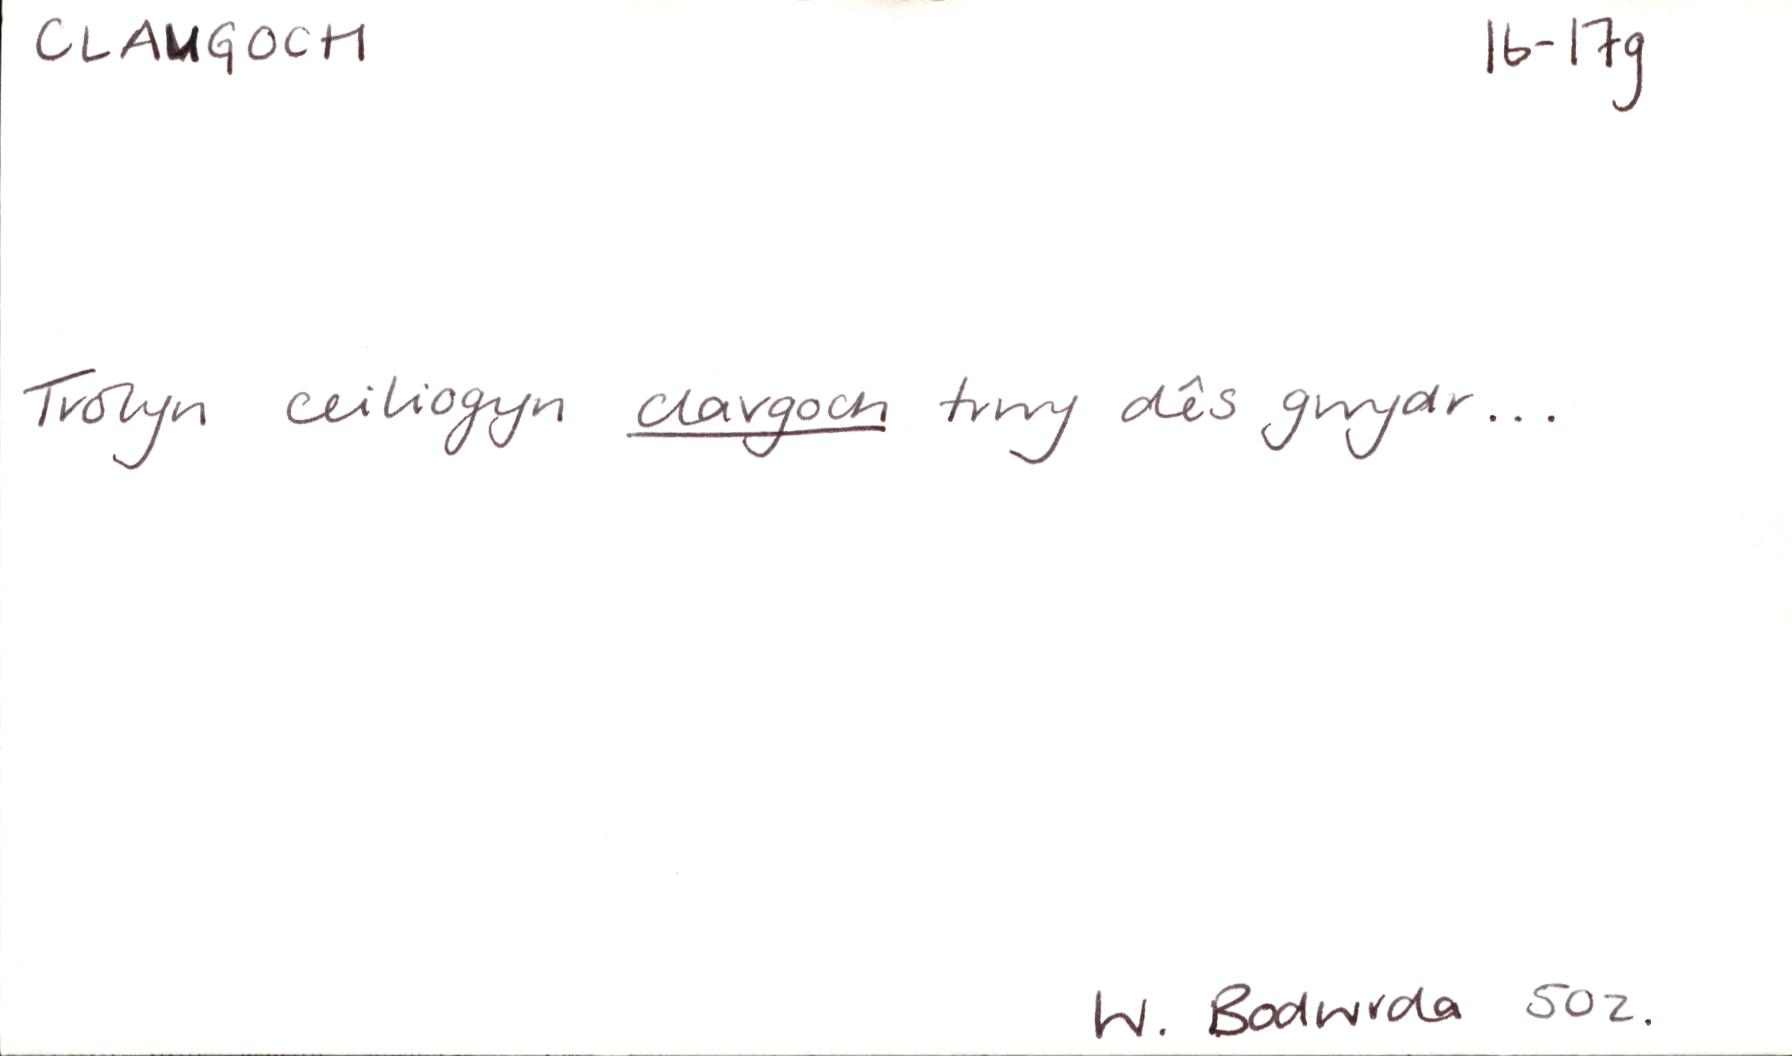 CLAUGOCH 16-17g
Trolyn ceiliogyn clavgoch trwy dês gwydr...
W. Bodwrda 502.